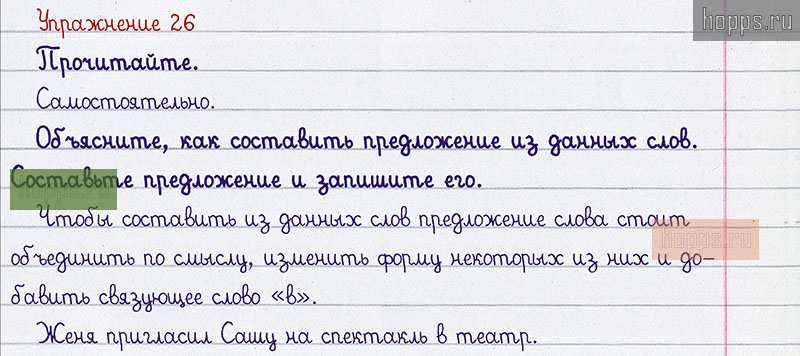 Упражнение 26
hopps.ru
Прочитайте.
Самостоятельно.
Объясните, как составить предложение из данных слов.
Составьте предложение и запишите его.
hopps.ru
Чтобы составить из данных слов предложение слова стоит
hopps.ru
объединить по смыслу, изменить форму некоторых из них и до-
бавить связующее слово «в».
Женя пригласил Сашу на спектакль в театр.